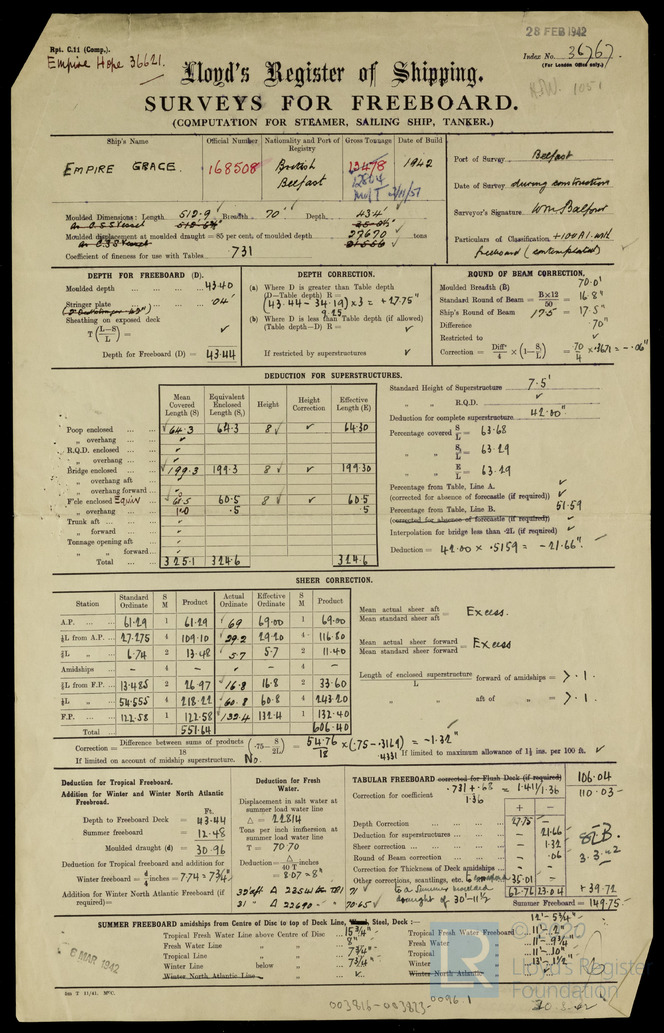 Rpt. C.11 (Comp.).
28 FEB 1942
Empire Hope 36621.
Index No. 36767.
(For London Office only.)
Lloyd's Register of Shipping.
SURVEYS FOR FREEBOARD.
(COMPUTATION FOR STEAMER, SAILING SHIP, TANKER.)
Ship's Name Official Number Nationality and Port of Registry Gross Tonnage Date of Build
EMPIRE GRACE. 168508 British Belfast 13478 1942
Port of Survey Belfast
Date of Survey during construction
Surveyor's Signature Wm Balfour
Particulars of Classification +100A1. with freeboard (contemplated)
Moulded Dimensions: Length 512.9 Breadth 70' Depth 43.4
Moulded displacement at moulded draught = 85 per cent. of moulded depth 27670 tons
Coefficient of fineness for use with Tables .731
DEPTH FOR FREEBOARD (D).
Moulded depth 43.40
Stringer plate .04
Sheathing on exposed deck
T (L–S / L) = ✓
Depth for Freeboard (D) = 43.44
DEPTH CORRECTION.
(a) Where D is greater than Table depth
(D–Table depth) R =
(43.44 - 34.19) × 3 = +27.75"
9.25
(b) Where D is less than Table depth (if allowed)
(Table depth–D) R = ✓
If restricted by superstructures ✓
ROUND OF BEAM CORRECTION.
Moulded Breadth (B) 70.0'
Standard Round of Beam = B×12 / 50 = 16.8"
Ship's Round of Beam = 17.5 = 17.5"
Difference .70"
Restricted to ✓
Correction = Diff. / 4 × (1– S₁ / L) = .70 / 4 × .3671 = -.06"
DEDUCTION FOR SUPERSTRUCTURES.
Mean Covered Length (S) Equivalent Enclosed Length (S₁) Height Height Correction Effective Length (E)
Poop enclosed 64.3 64.3 8 ✓ ✓ 64.30
„ overhang ✓
R.Q.D. enclosed ✓
„ overhang ✓
Bridge enclosed 199.3 199.3 8 ✓ ✓ 199.30
„ overhang aft
„ overhang forward
F'cle enclosed Equiv 60.5 60.5 8 ✓ ✓ 60.5
„ overhang 1.0 .5 .5
Trunk aft ✓
„ forward ✓
Tonnage opening aft ✓
„ „ forward ✓
Total 325.1 324.6 324.6
Standard Height of Superstructure 7.5'
„ „ R.Q.D. ✓
Deduction for complete superstructure 42.00"
Percentage covered S / L = 63.68
„ „ S₁ / L = 63.29
„ „ E / L = 63.29
Percentage from Table, Line A. ✓
(corrected for absence of forecastle (if required)) ✓
Percentage from Table, Line B. 51.59
(corrected for absence of forecastle (if required)) ✓
Interpolation for bridge less than ·2L (if required) ✓
Deduction = 42.00 × .5159 = -21.66"
SHEER CORRECTION.
Station Standard Ordinate S M Product Actual Ordinate Effective Ordinate S M Product
A.P. 61.29 1 61.29 69 69.00 1 69.00
⅙L from A.P. 27.275 4 109.10 29.2 29.20 4 116.80
⅓L „ 6.74 2 13.48 5.7 5.7 2 11.40
Amidships - 4 - ✓ - 4 -
⅓L from F.P. 13.485 2 26.97 16.8 16.8 2 33.60
⅙L „ 54.555 4 218.22 60.8 60.8 4 243.20
F.P. 122.58 1 122.58 132.4 132.4 1 132.40
Total 551.64 606.40
Mean actual sheer aft / Mean standard sheer aft = Excess.
Mean actual sheer forward / Mean standard sheer forward = Excess
Length of enclosed superstructure / L forward of amidships = > .1
„ „ aft of „ = > .1
Correction = Difference between sums of products / 18 (·75– S / 2L) = 54.76 / 18 × (.75 - .3169) = -1.32"
.4331
If limited on account of midship superstructure. No.
If limited to maximum allowance of 1½ ins. per 100 ft. ✓
Deduction for Tropical Freeboard.
Addition for Winter and Winter North Atlantic Freeboard.
Ft.
Depth to Freeboard Deck = 43.44
Summer freeboard = 12.48
Moulded draught (d) = 30.96
Deduction for Tropical freeboard and addition for Winter freeboard = d / 4 inches = 7.74 = 7¾"
Addition for Winter North Atlantic Freeboard (if required) =
Deduction for Fresh Water.
Displacement in salt water at summer load water line
Δ = 22814
Tons per inch immersion at summer load water line
T = 70.70
Deduction = Δ / 40 T inches
= 8.07 = 8"
TABULAR FREEBOARD corrected for Flush Deck (if required) 106.04
Correction for coefficient .731 + .68 / 1.36 = 1.411/1.36 110.03
+ -
Depth Correction 27.75 -
Deduction for superstructures - 21.66
Sheer correction - 1.32
Round of Beam correction - .06
Correction for Thickness of Deck amidships - -
Other corrections, scantlings, etc. 35.01 -
to a Summer moulded draught of 30'-11½
62.76 23.04 +39.72
Summer Freeboard = 149.75
3.3.42
SUMMER FREEBOARD amidships from Centre of Disc to top of Deck Line, Wood, Steel, Deck :— 12'- 5¾"
Tropical Fresh Water Line above Centre of Disc 15¾"
Fresh Water Line „ „ 8"
Tropical Line „ „ 7¾"
Winter Line below „ 7¾"
Winter North Atlantic Line „ „ ✓
Tropical Fresh Water Freeboard 11'- 2"
Fresh Water „ 11'- 9¾"
Tropical „ 11'- 10"
Winter „ 13'- 1½"
Winter North Atlantic „
6 MAR 1942
5m T 11/41. MᶜC.
003816-003823-0096.1
LR
© 2020
Lloyd's Register
Foundation